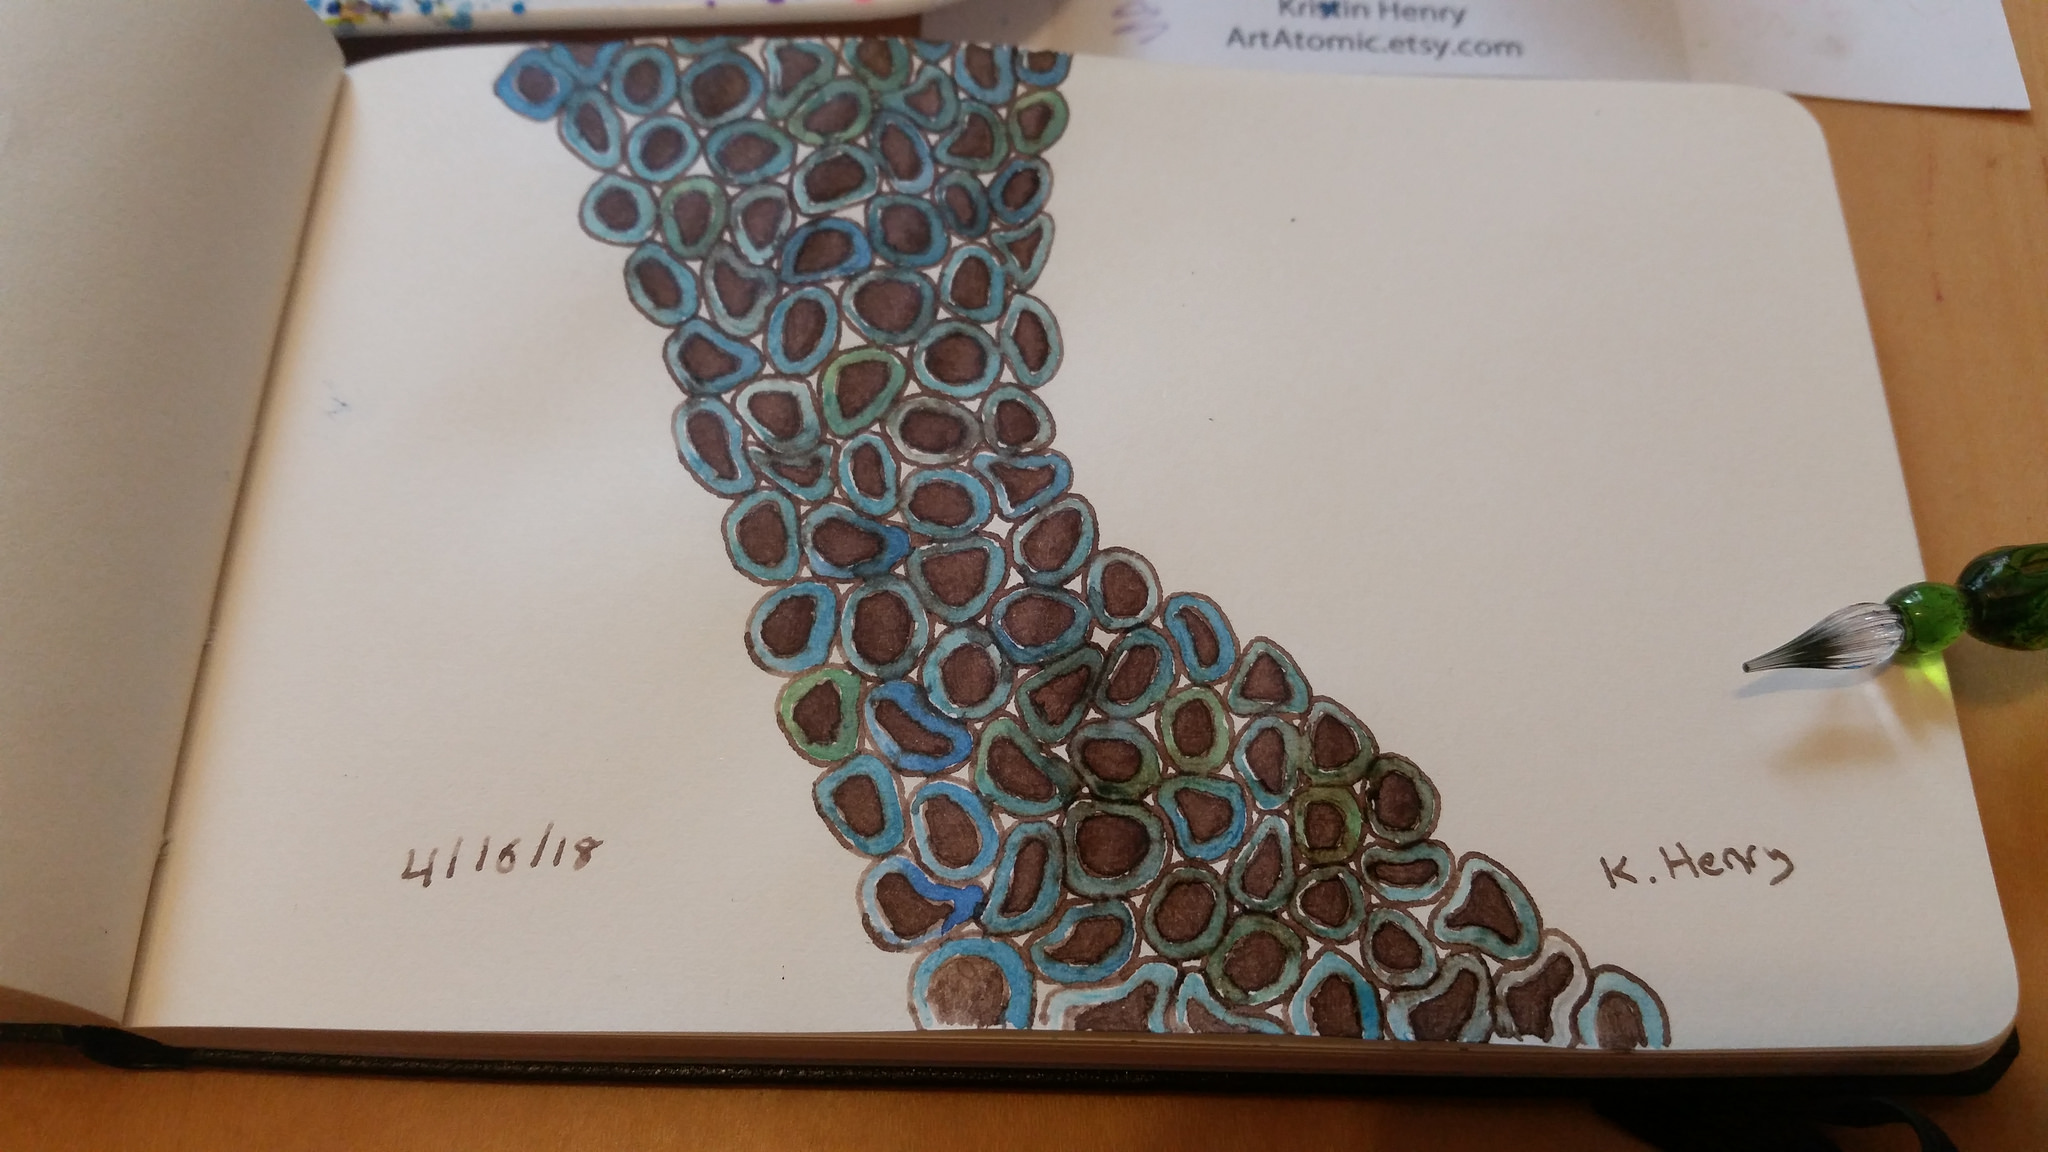 Kristin Henry
ArtAtomic.etsy.com
4/16/18
K. Henry